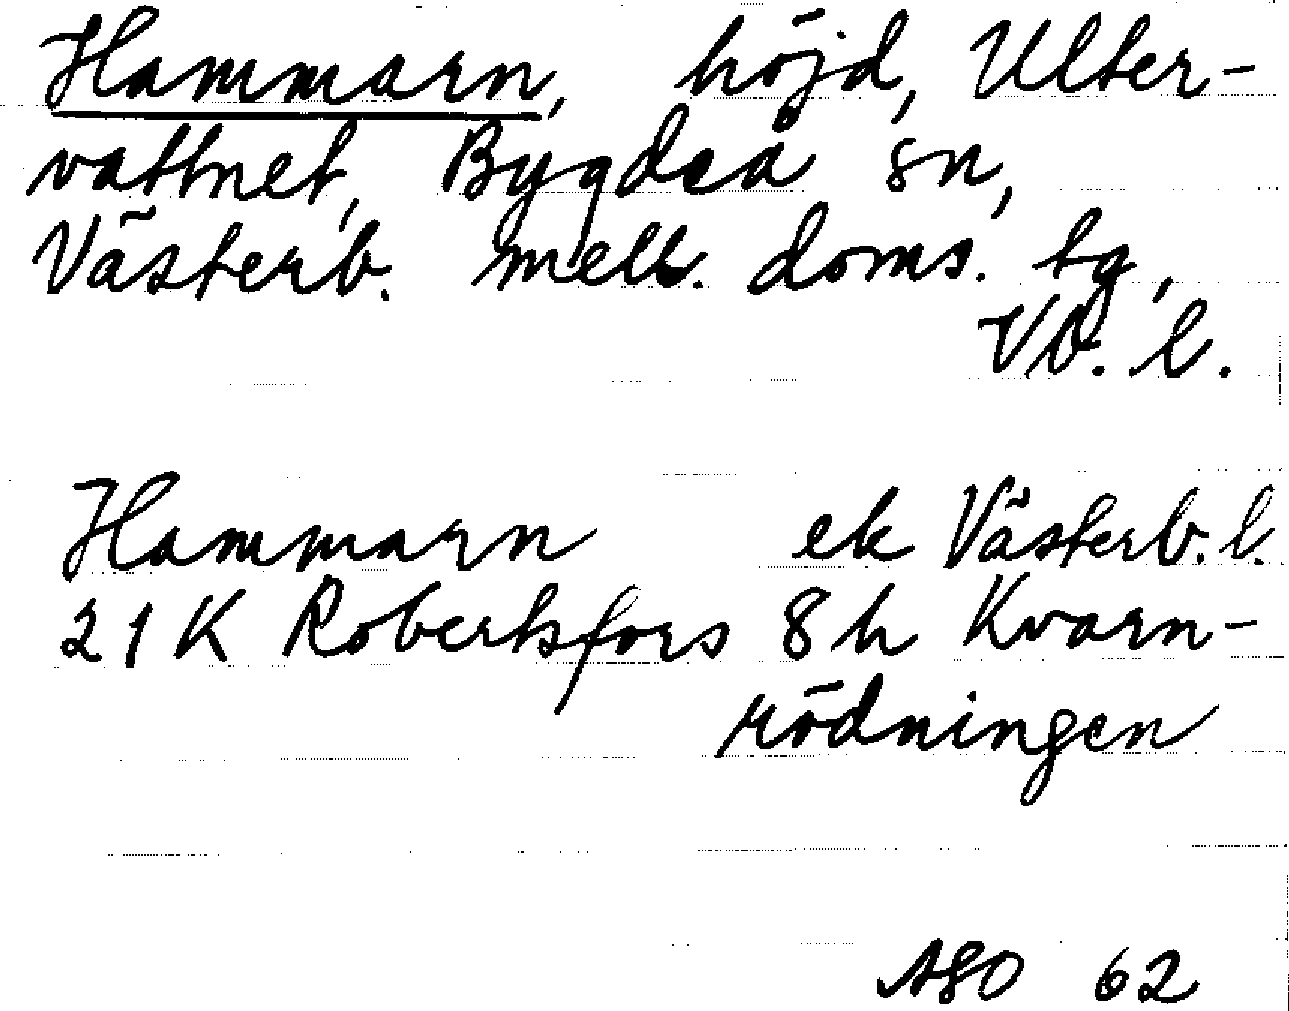 Hammarn, höjd, Ulter-
vattnet, Bygdeå sn,
Västerb. mell. doms. tg,
Vb. l.
Hammarn ek Västerb. l.
21 K Robertsfors 8 h Kvarn-
rödningen
ASO 62